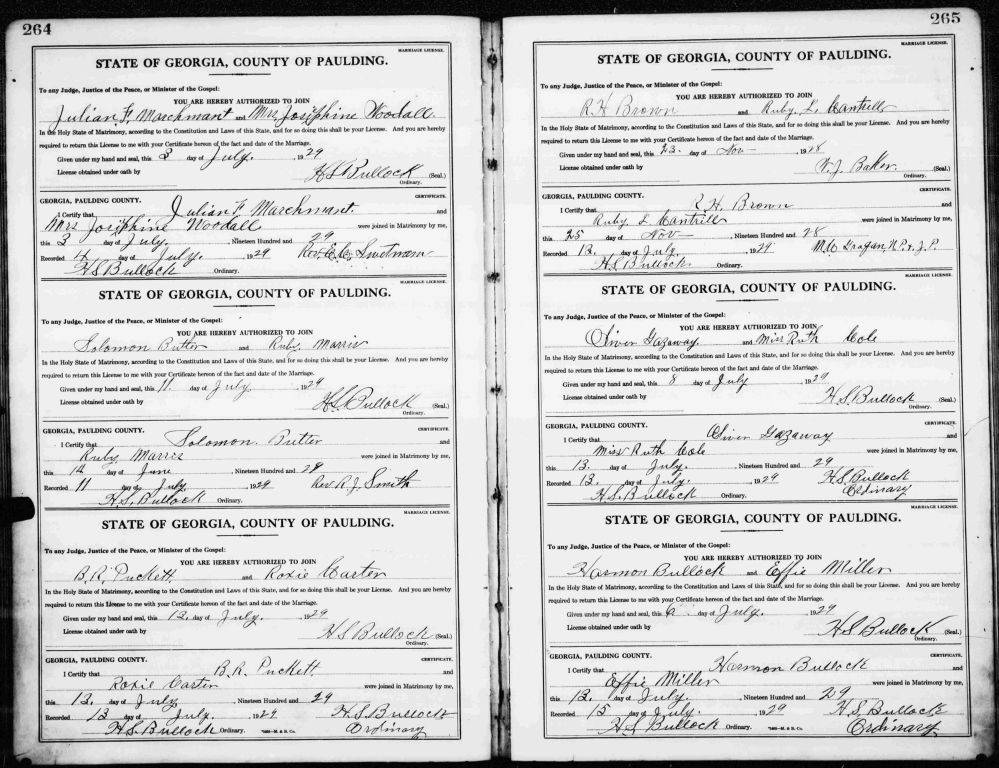 264
MARRIAGE LICENSE.
STATE OF GEORGIA, COUNTY OF PAULDING.
To any Judge, Justice of the Peace, or Minister of the Gospel:
YOU ARE HEREBY AUTHORIZED TO JOIN
Julian F. Marchmant and Mrs Josiphine Woodall
In the Holy State of Matrimony, according to the Constitution and Laws of this State, and for so doing this shall be your License. And you are hereby
required to return this License to me with your Certificate hereof of the fact and date of the Marriage.
Given under my hand and seal, this 3 day of July. 1929
License obtained under oath by H S Bullock (Seal.)
Ordinary.
CERTIFICATE.
GEORGIA, PAULDING COUNTY.
I Certify that Julian F. Marchmant. and
Mrs Josiphine Woodall were joined in Matrimony by me,
this 3 day of July. , Nineteen Hundred and 29
Recorded 4 day of July. 1929 Rev.
H S Bullock Ordinary.
MARRIAGE LICENSE.
STATE OF GEORGIA, COUNTY OF PAULDING.
To any Judge, Justice of the Peace, or Minister of the Gospel:
YOU ARE HEREBY AUTHORIZED TO JOIN
Solomon Butter and Ruby Marris
In the Holy State of Matrimony, according to the Constitution and Laws of this State, and for so doing this shall be your License. And you are hereby
required to return this License to me with your Certificate hereof of the fact and date of the Marriage.
Given under my hand and seal, this 11 day of July 1929
License obtained under oath by H.S. Bullock (Seal.)
Ordinary.
CERTIFICATE.
GEORGIA, PAULDING COUNTY.
I Certify that Solomon Butter and
Ruby Marris were joined in Matrimony by me,
this 14 day of June , Nineteen Hundred and 29
Recorded 11 day of July 1929 Rev R. J. Smith
H.S. Bullock Ordinary.
MARRIAGE LICENSE.
STATE OF GEORGIA, COUNTY OF PAULDING.
To any Judge, Justice of the Peace, or Minister of the Gospel:
YOU ARE HEREBY AUTHORIZED TO JOIN
B.R. Puckett. and Roxie Carter
In the Holy State of Matrimony, according to the Constitution and Laws of this State, and for so doing this shall be your License. And you are hereby
required to return this License to me with your Certificate hereof of the fact and date of the Marriage.
Given under my hand and seal, this 12. day of July. 1929
License obtained under oath by H S Bullock (Seal.)
Ordinary.
CERTIFICATE.
GEORGIA, PAULDING COUNTY.
I Certify that B.R. Puckett. and
Roxie Carter were joined in Matrimony by me,
this 12. day of July , Nineteen Hundred and 29
Recorded 12 day of July. 1929 H.S. Bullock
H.S. Bullock Ordinary. Ordinary
265
MARRIAGE LICENSE.
STATE OF GEORGIA, COUNTY OF PAULDING.
To any Judge, Justice of the Peace, or Minister of the Gospel:
YOU ARE HEREBY AUTHORIZED TO JOIN
R.H. Brown and Ruby L. Cantrell
In the Holy State of Matrimony, according to the Constitution and Laws of this State, and for so doing this shall be your License. And you are hereby
required to return this License to me with your Certificate hereof of the fact and date of the Marriage.
Given under my hand and seal, this 23. day of Nov 1928
License obtained under oath by J. Baker (Seal.)
Ordinary.
CERTIFICATE.
GEORGIA, PAULDING COUNTY.
I Certify that R.H. Brown and
Ruby L Cantrell were joined in Matrimony by me,
this 25 day of Nov , Nineteen Hundred and 28
Recorded 13. day of July 1929 Dragan, N.P. & J.P.
H.S. Bullock Ordinary.
MARRIAGE LICENSE.
STATE OF GEORGIA, COUNTY OF PAULDING.
To any Judge, Justice of the Peace, or Minister of the Gospel:
YOU ARE HEREBY AUTHORIZED TO JOIN
Oliver Gazaway. and Miss Ruth Cole
In the Holy State of Matrimony, according to the Constitution and Laws of this State, and for so doing this shall be your License. And you are hereby
required to return this License to me with your Certificate hereof of the fact and date of the Marriage.
Given under my hand and seal, this 8 day of July 1929
License obtained under oath by H.S. Bullock (Seal.)
Ordinary.
CERTIFICATE.
GEORGIA, PAULDING COUNTY.
I Certify that Oliver Gazaway and
Miss Ruth Cole were joined in Matrimony by me,
this 13. day of July. , Nineteen Hundred and 29
Recorded 13. day of July. 1929 H.S. Bullock
H.S. Bullock Ordinary. Ordinary
MARRIAGE LICENSE.
STATE OF GEORGIA, COUNTY OF PAULDING.
To any Judge, Justice of the Peace, or Minister of the Gospel:
YOU ARE HEREBY AUTHORIZED TO JOIN
Harmon Bullock and Effie Miller
In the Holy State of Matrimony, according to the Constitution and Laws of this State, and for so doing this shall be your License. And you are hereby
required to return this License to me with your Certificate hereof of the fact and date of the Marriage.
Given under my hand and seal, this 6 day of July. 1929
License obtained under oath by H.S. Bullock (Seal.)
Ordinary.
CERTIFICATE.
GEORGIA, PAULDING COUNTY.
I Certify that Harmon Bullock and
Effie Miller were joined in Matrimony by me,
this 12. day of July. , Nineteen Hundred and 29
Recorded 15 day of July. 1929 H.S. Bullock
H.S. Bullock Ordinary. Ordinary